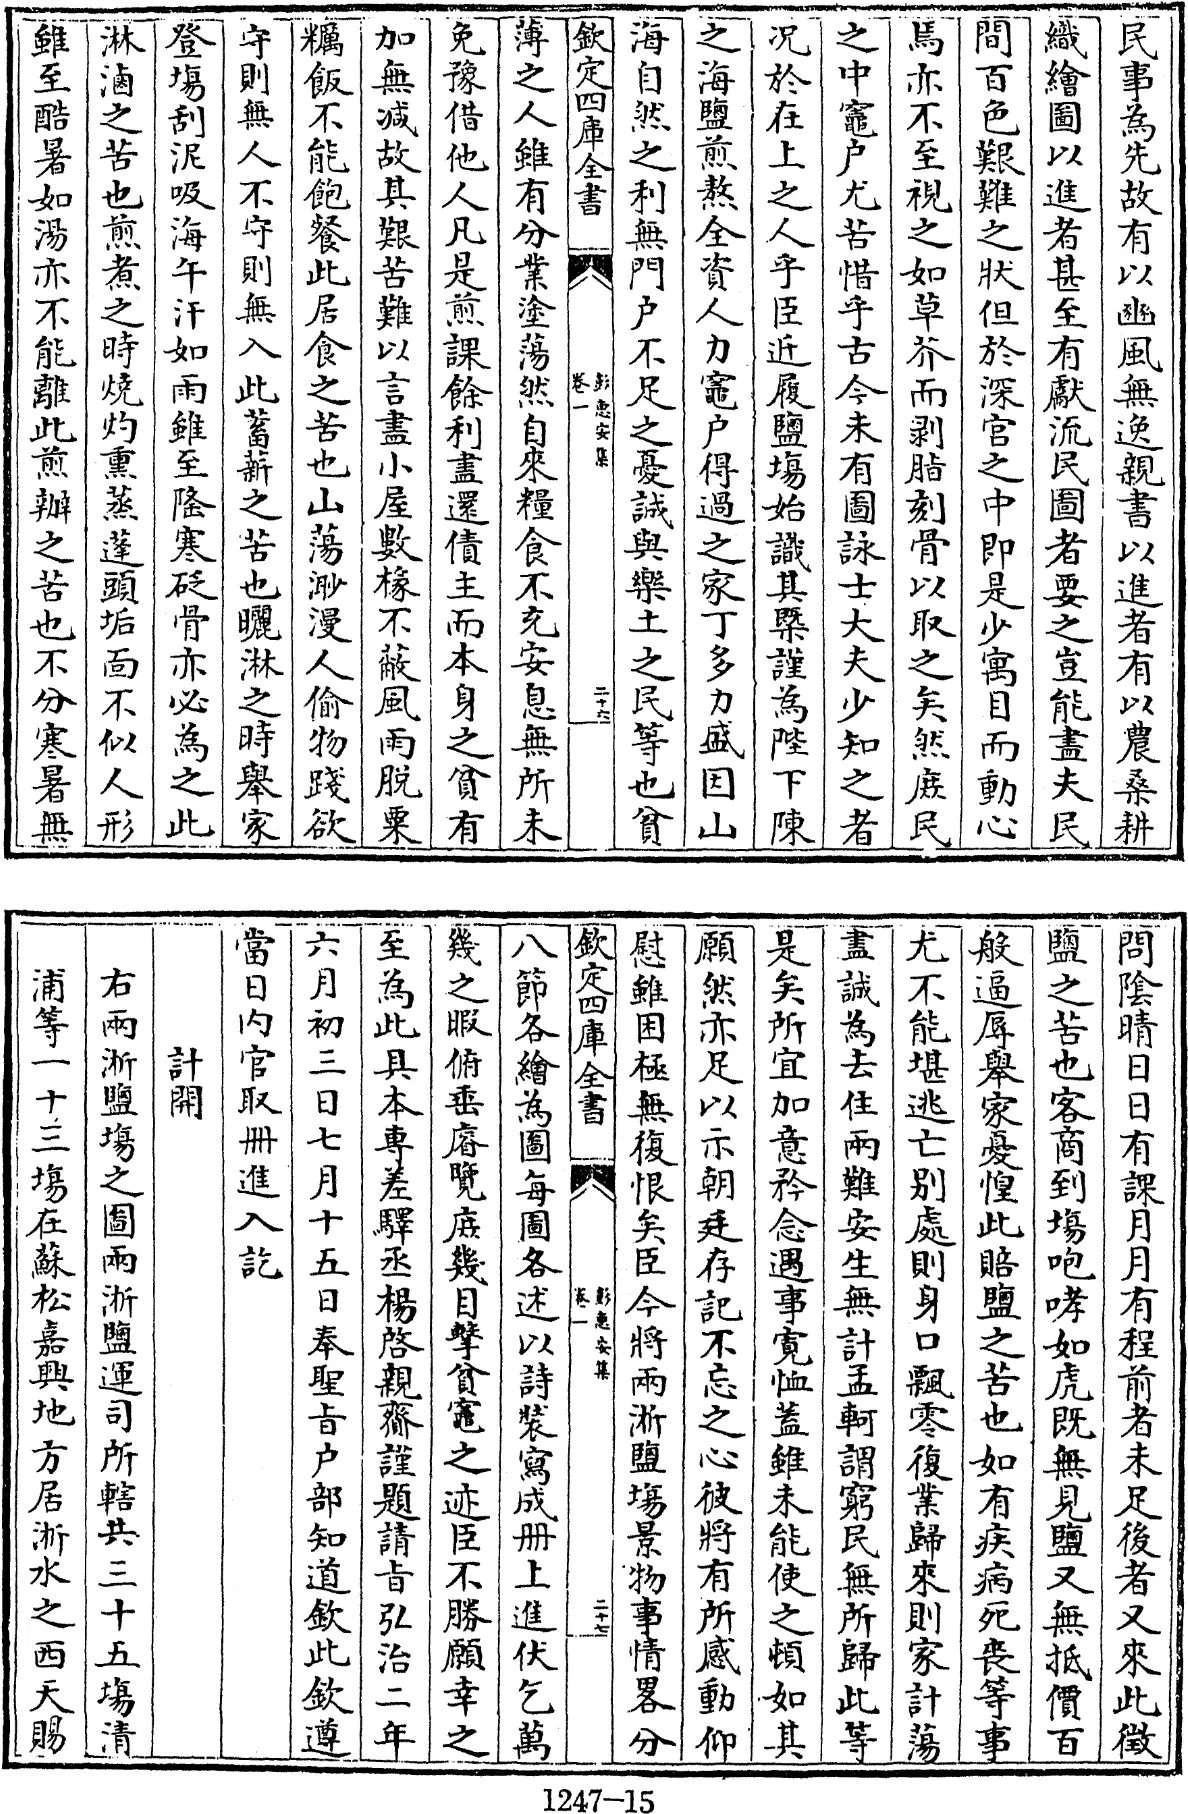 民事為先故有以豳風無逸親書以進者有以農桑耕
織繪圖以進者甚至有獻流民圖者要之豈能盡夫民
間百色艱難之狀但於深宫之中即是少寓目而動心
焉亦不至視之如草芥而剥脂刻骨以取之矣然庻民
之中竈户尤苦惜乎古今未有圖詠士大夫少知之者
况於在上之人乎臣近履鹽塲始識其槩謹為陛下陳
之海鹽煎熬全資人力竈户得過之家丁多力盛因山
海自然之利無門户不足之憂誠與樂土之民等也貧
欽定四庫全書
彭惠安集
卷一
二十六
薄之人雖有分業塗蕩然自來糧食不充安息無所未
免豫借他人凡是煎課餘利盡還債主而本身之貧有
加無减故其艱苦難以言盡小屋數椽不蔽風雨脱粟
糲飯不能飽餐此居食之苦也山蕩渺漫人偷物踐欲
守則無人不守則無入此蓄薪之苦也曬淋之時舉家
登塲刮泥吸海午汗如雨雖至隆寒砭骨亦必為之此
淋滷之苦也煎煮之時燒灼熏蒸蓬頭垢面不似人形
雖至酷暑如湯亦不能離此煎辦之苦也不分寒暑無
問陰晴日日有課月月有程前者未足後者又來此徵
鹽之苦也客商到塲咆哮如虎既無見鹽又無抵價百
般逼辱舉家憂惶此賠鹽之苦也如有疾病死喪等事
尤不能堪逃亡别處則身口飄零復業歸來則家計蕩
盡誠為去住兩難安生無計孟軻謂窮民無所歸此等
是矣所宜加意矜念遇事寛恤蓋雖未能使之頓如其
願然亦足以示朝廷存記不忘之心彼將有所感動仰
慰雖困極無復恨矣臣今將兩淅鹽塲景物事情畧分
欽定四庫全書
彭惠安集
卷一
二十七
八節各繪為圖每圖各述以詩裝寫成册上進伏乞萬
幾之暇俯垂睿覽庻幾目擊貧竈之迹臣不勝願幸之
至為此具本專差驛丞楊啓親齎謹題請旨弘治二年
六月初三日七月十五日奉聖旨户部知道欽此欽遵
當日内官取册進入訖
計開
右兩淅鹽塲之圖兩淅鹽運司所轄共三十五塲清
浦等一十三塲在蘇松嘉興地方居淅水之西天賜
1247—15